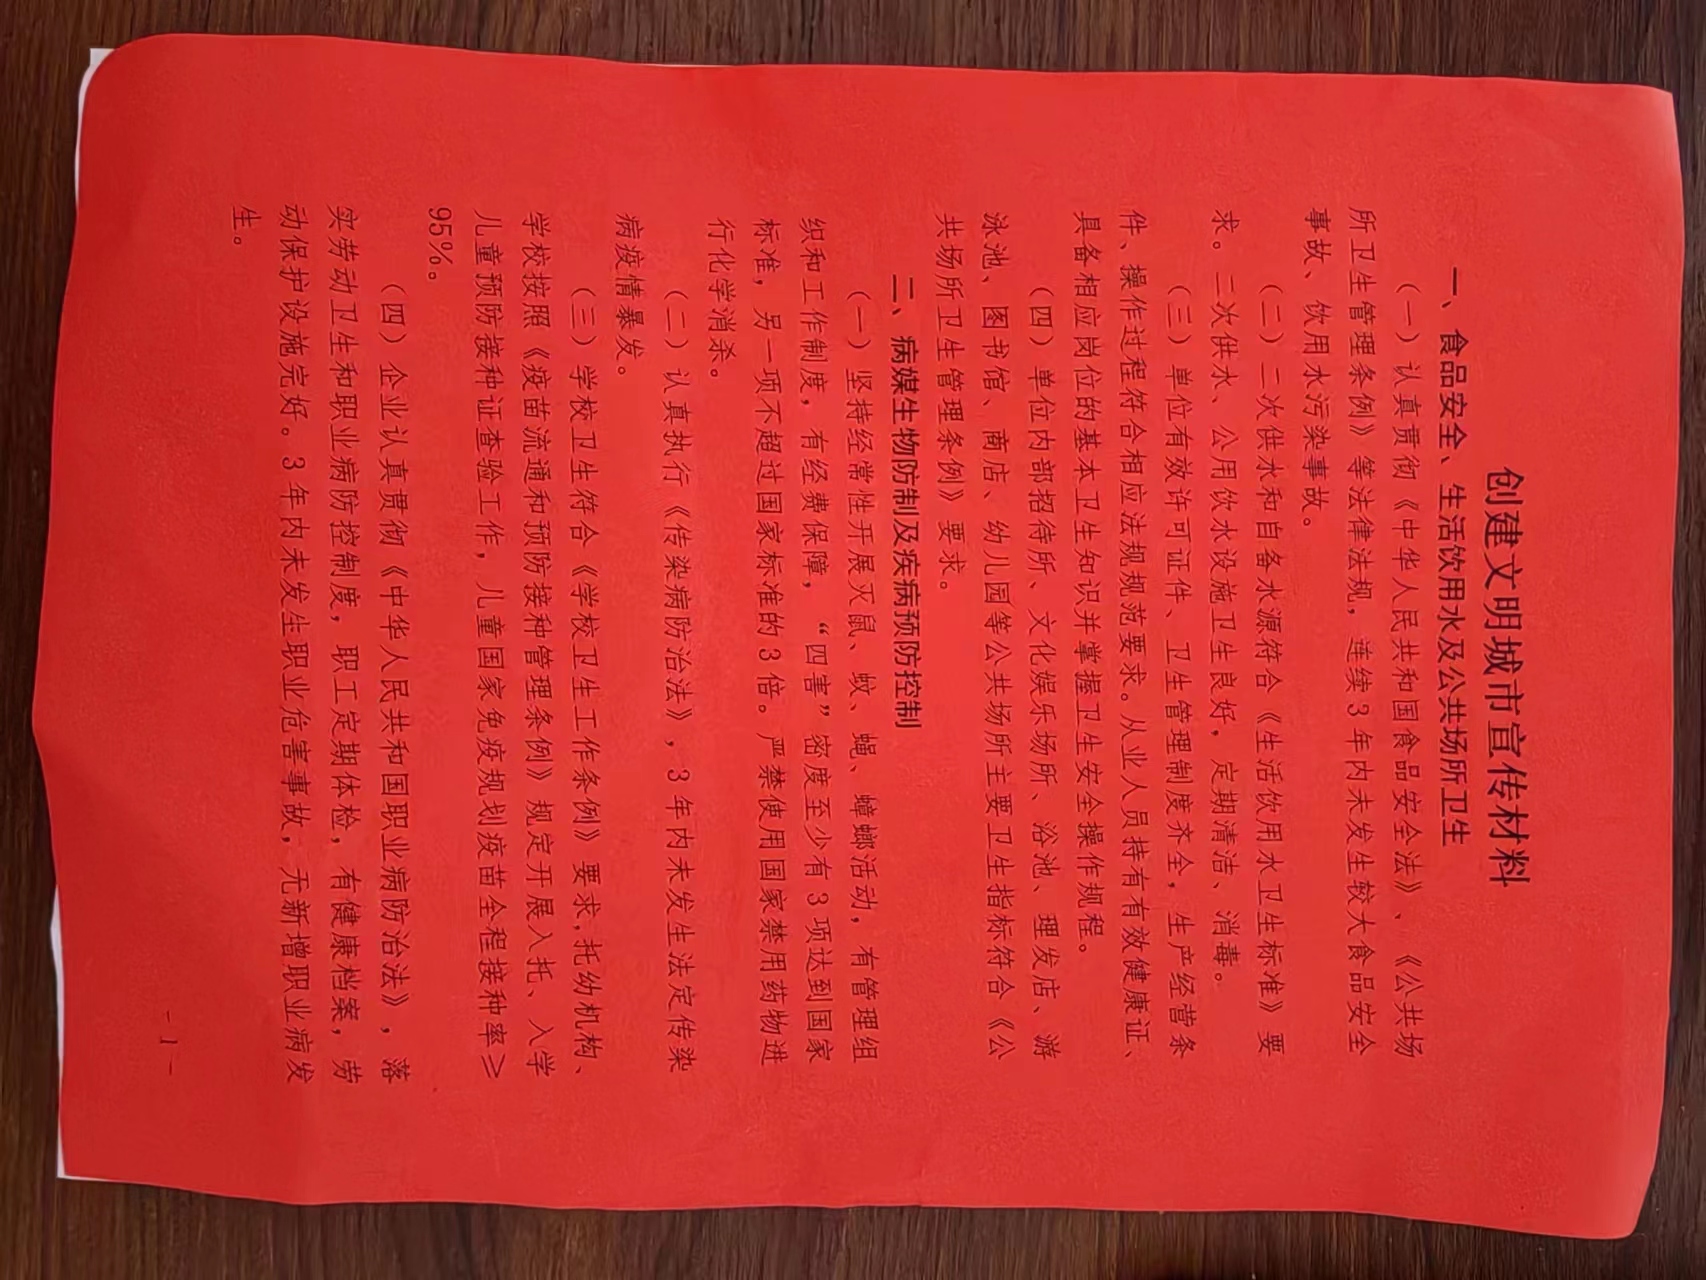 创建文明城市宣传材料
一、食品安全、生活饮用水及公共场所卫生
（一）认真贯彻《中华人民共和国食品安全法》、《公共场
所卫生管理条例》等法律法规，连续3年内未发生较大食品安全
事故、饮用水污染事故。
（二）二次供水和自备水源符合《生活饮用水卫生标准》要
求。二次供水、公用饮水设施卫生良好，定期清洁、消毒。
（三）单位有效许可证件、卫生管理制度齐全，生产经营条
件、操作过程符合相应法规规范要求。从业人员持有有效健康证、
具备相应岗位的基本卫生知识并掌握卫生安全操作规程。
（四）单位内部招待所、文化娱乐场所、浴池、理发店、游
泳池、图书馆、商店、幼儿园等公共场所主要卫生指标符合《公
共场所卫生管理条例》要求。
二、病媒生物防制及疾病预防控制
（一）坚持经常性开展灭鼠、蚊、蝇、蟑螂活动，有管理组
织和工作制度，有经费保障，“四害”密度至少有3项达到国家
标准，另一项不超过国家标准的3倍。严禁使用国家禁用药物进
行化学消杀。
（二）认真执行《传染病防治法》，3年内未发生法定传染
病疫情暴发。
（三）学校卫生符合《学校卫生工作条例》要求，托幼机构、
学校按照《疫苗流通和预防接种管理条例》规定开展入托、入学
儿童预防接种证查验工作，儿童国家免疫规划疫苗全程接种率≥
95%。
（四）企业认真贯彻《中华人民共和国职业病防治法》，落
实劳动卫生和职业病防控制度，职工定期体检，有健康档案，劳
动保护设施完好。3年内未发生职业危害事故，无新增职业病发
生。
- 1 -